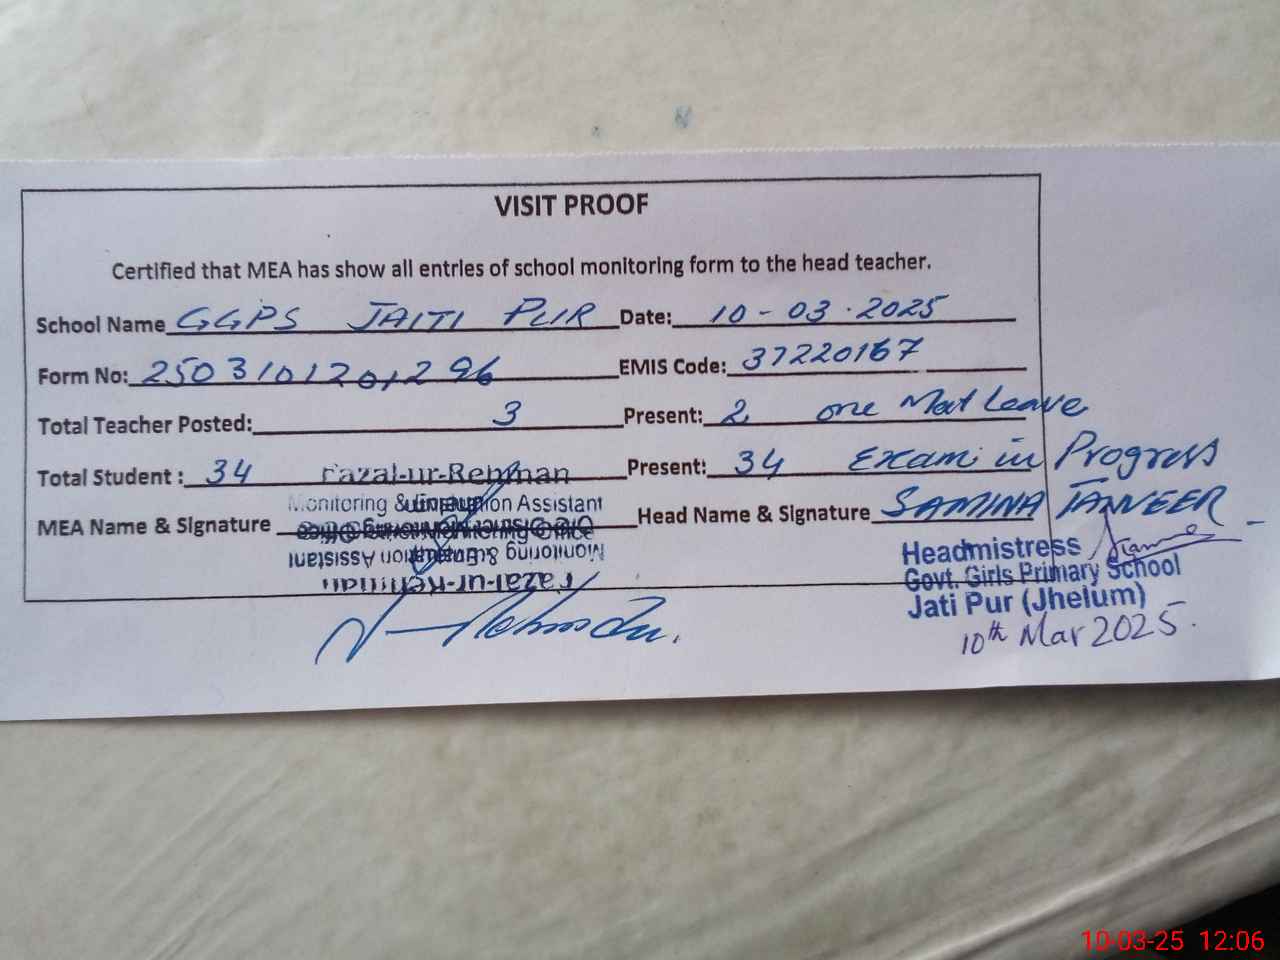 VISIT PROOF
Certified that MEA has show all entries of school monitoring form to the head teacher.
School Name GGPS JAITI PUR Date: 10-03-2025
Form No: 2503101201296 EMIS Code: 37220167
Total Teacher Posted: 3 Present: 2 one Mat Leave
Total Student : 34 Present: 34 Exam in Progress
Fazal-ur-Rehman
Monitoring & Evaluation Assistant
MEA Name & Signature Head Name & Signature SAMINA TANVEER
District Monitoring Office
Monitoring & Evaluation Assistant
Fazal-ur-Rehman
Headmistress
Govt. Girls Primary School
Jati Pur (Jhelum)
10th Mar 2025.
10-03-25 12:06